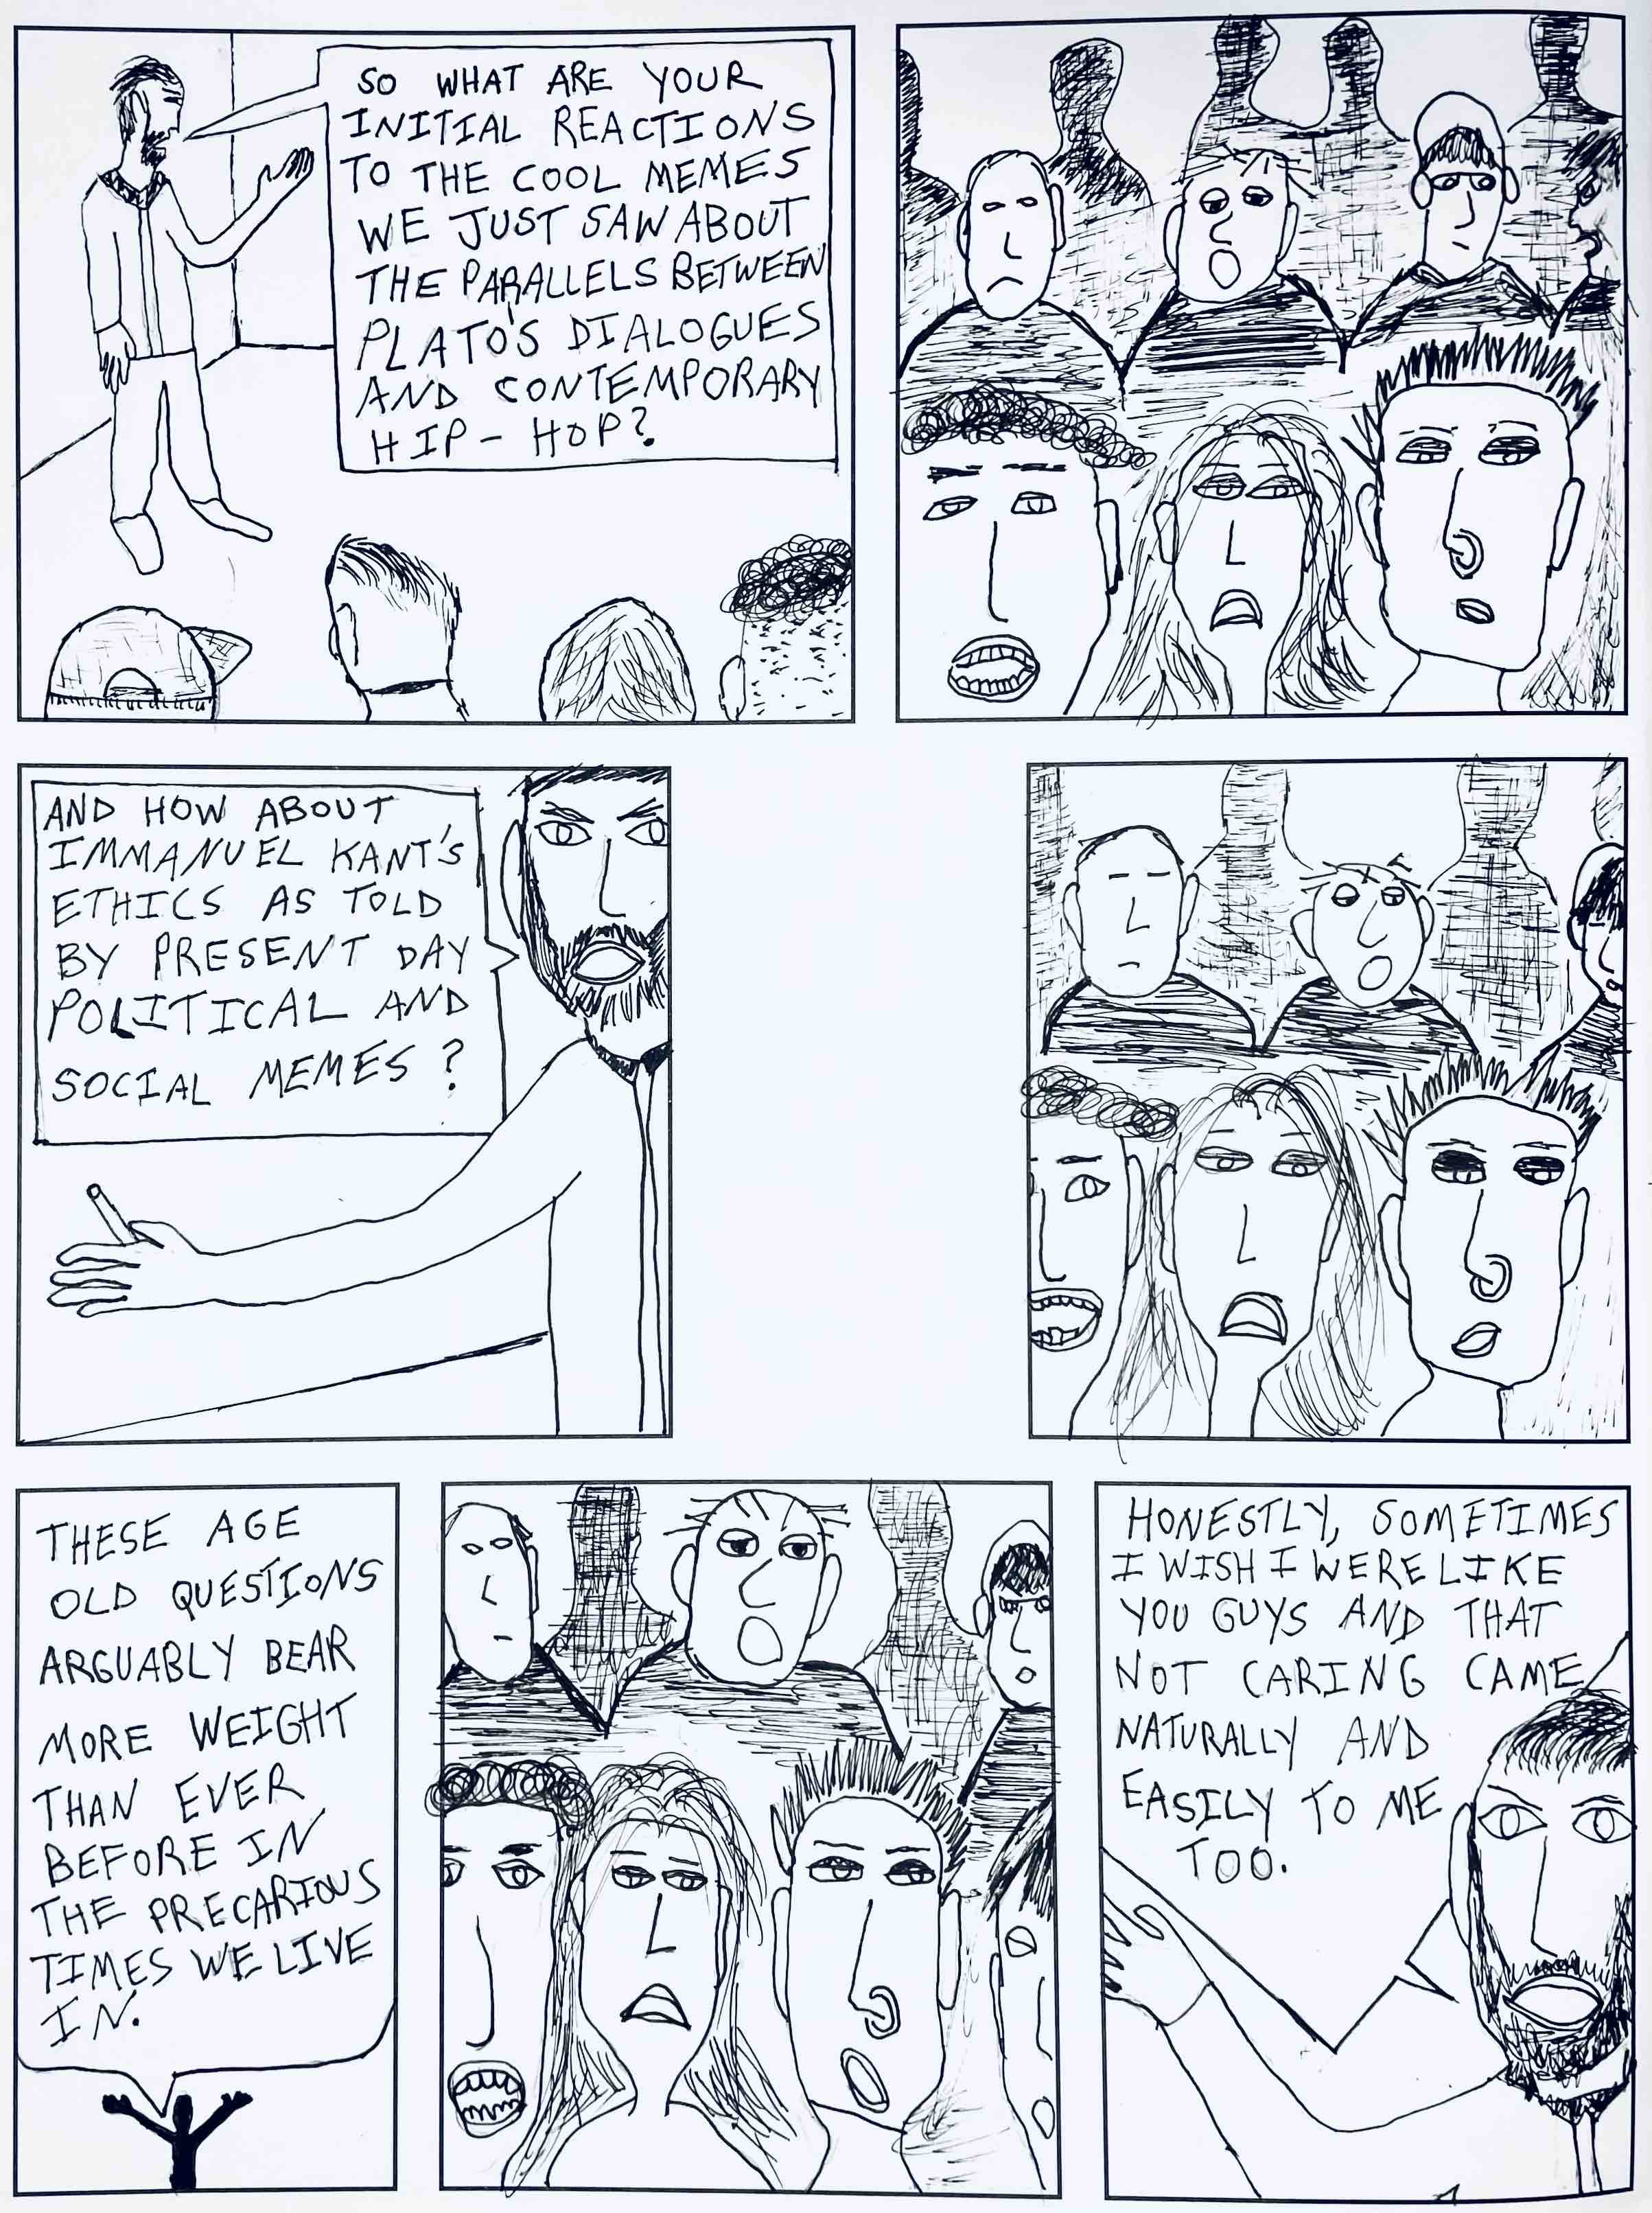 SO WHAT ARE YOUR
INITIAL REACTIONS
TO THE COOL MEMES
WE JUST SAW ABOUT
THE PARALLELS BETWEEN
PLATO'S DIALOGUES
AND CONTEMPORARY
HIP-HOP?
AND HOW ABOUT
IMMANUEL KANT'S
ETHICS AS TOLD
BY PRESENT DAY
POLITICAL AND
SOCIAL MEMES?
THESE AGE
OLD QUESTIONS
ARGUABLY BEAR
MORE WEIGHT
THAN EVER
BEFORE IN
THE PRECARIOUS
TIMES WE LIVE
IN.
HONESTLY, SOMETIMES
I WISH I WERE LIKE
YOU GUYS AND THAT
NOT CARING CAME
NATURALLY AND
EASILY TO ME
TOO.